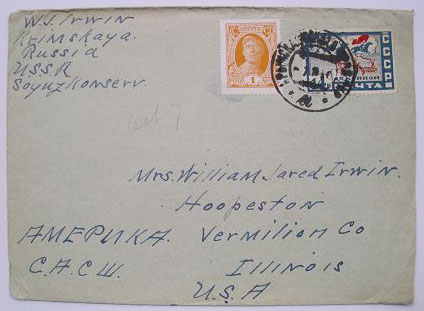 W.J. Irwin
Krimskaya
Russia
USSR
Soyuzkonserv.
1
СССР
ПОЧТА
Oct 7
Mrs. William Jared Irwin.
Hoopeston
АМЕРИКА. Vermilion Co
С.А.С.Ш. Illinois
U.S.A